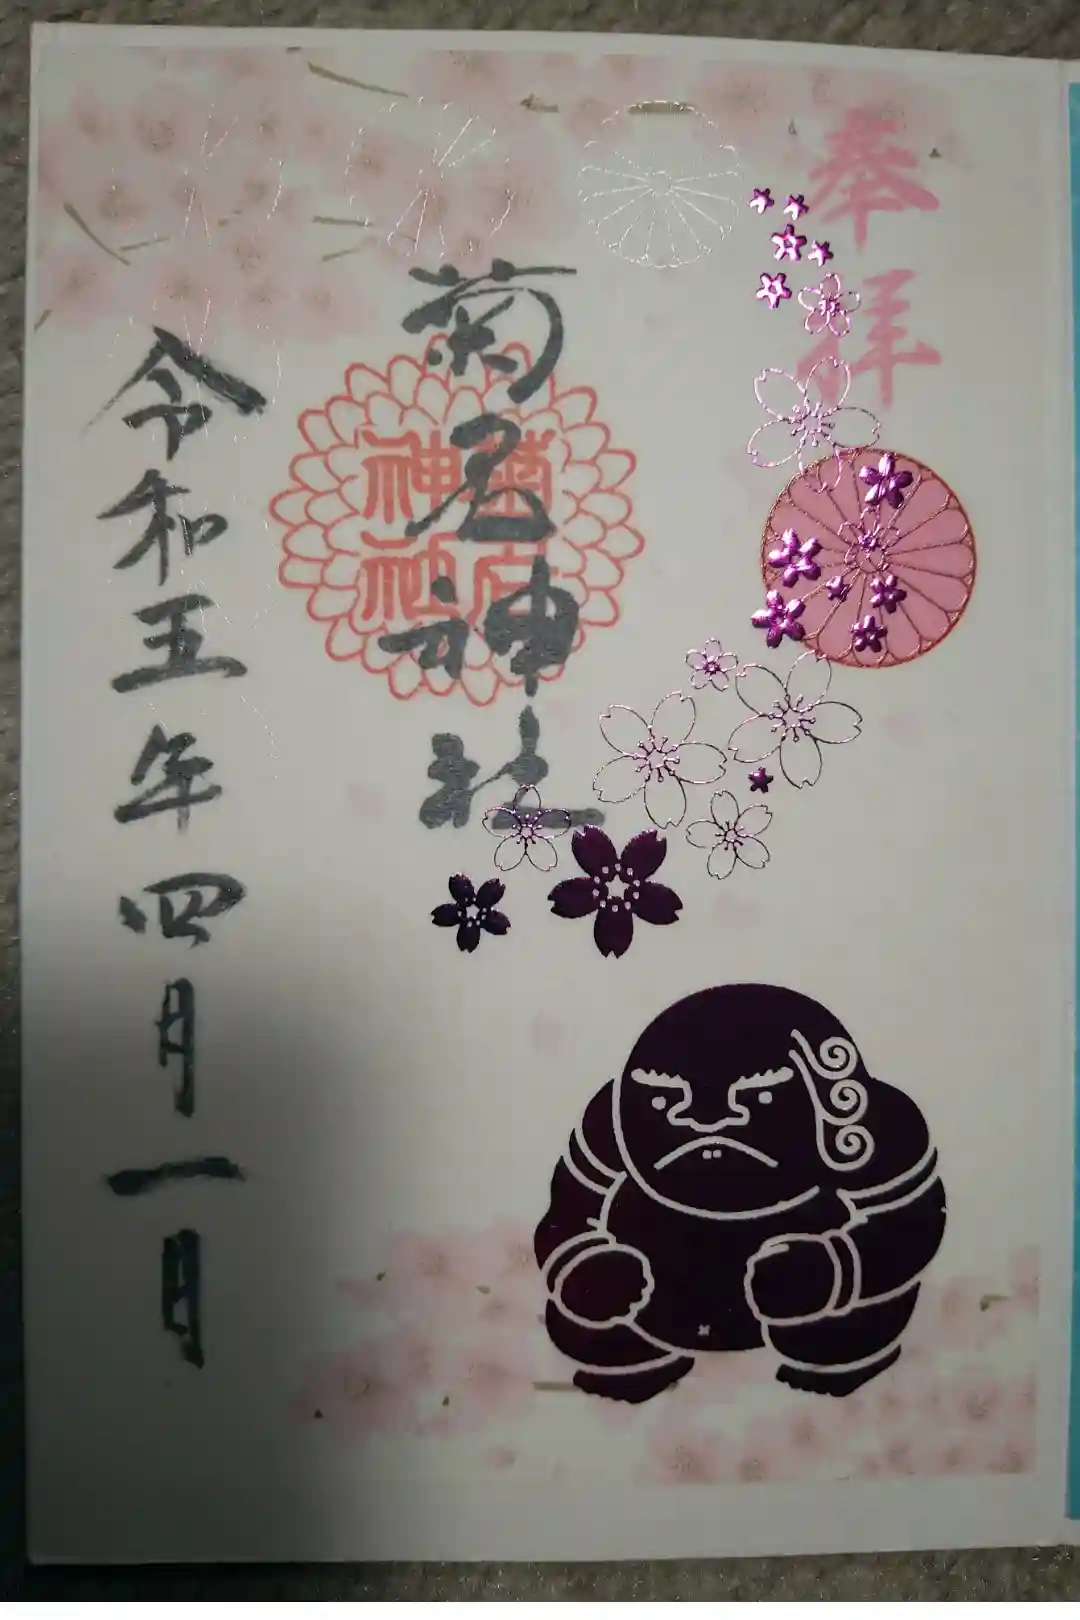 奉拝
菊名神社
菊名
神社
令和五年四月一日